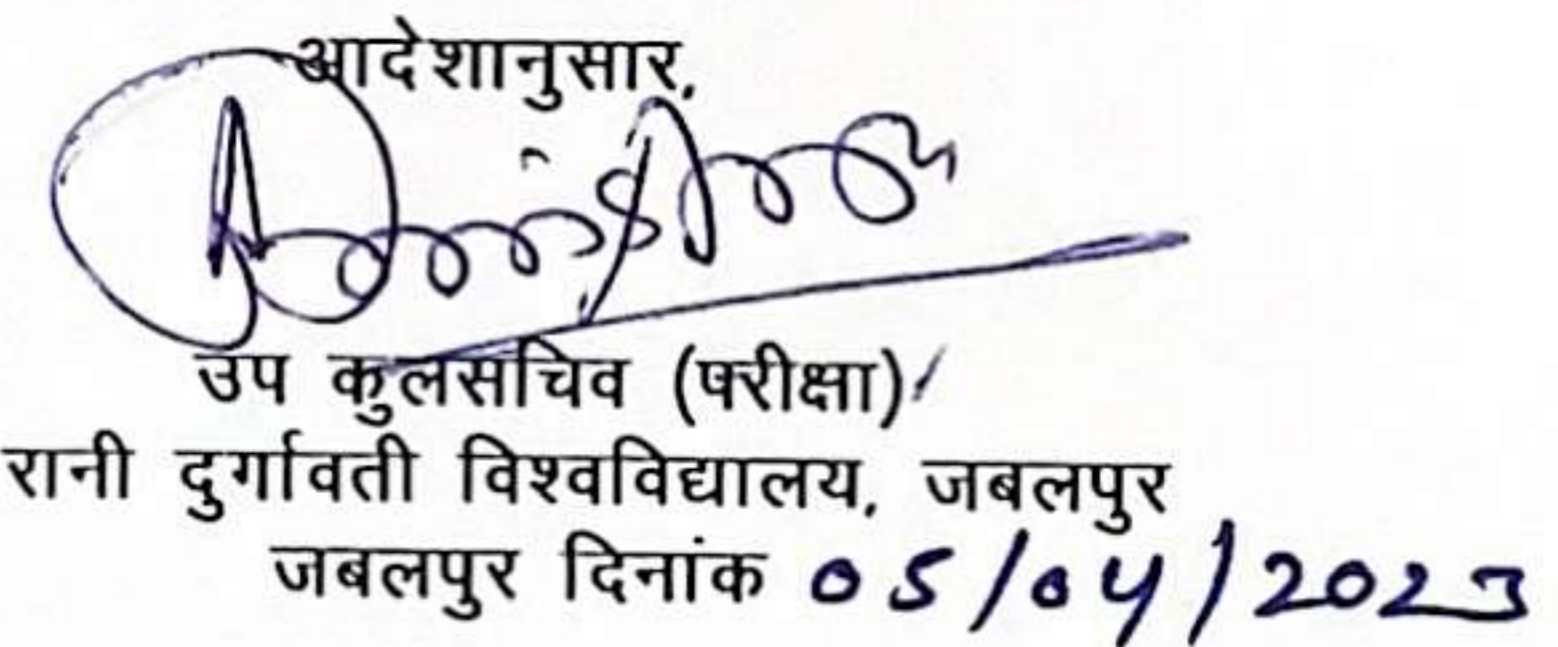 आदेशानुसार,
उप कुलसचिव (परीक्षा)
रानी दुर्गावती विश्वविद्यालय, जबलपुर
जबलपुर दिनांक 05/04/2023